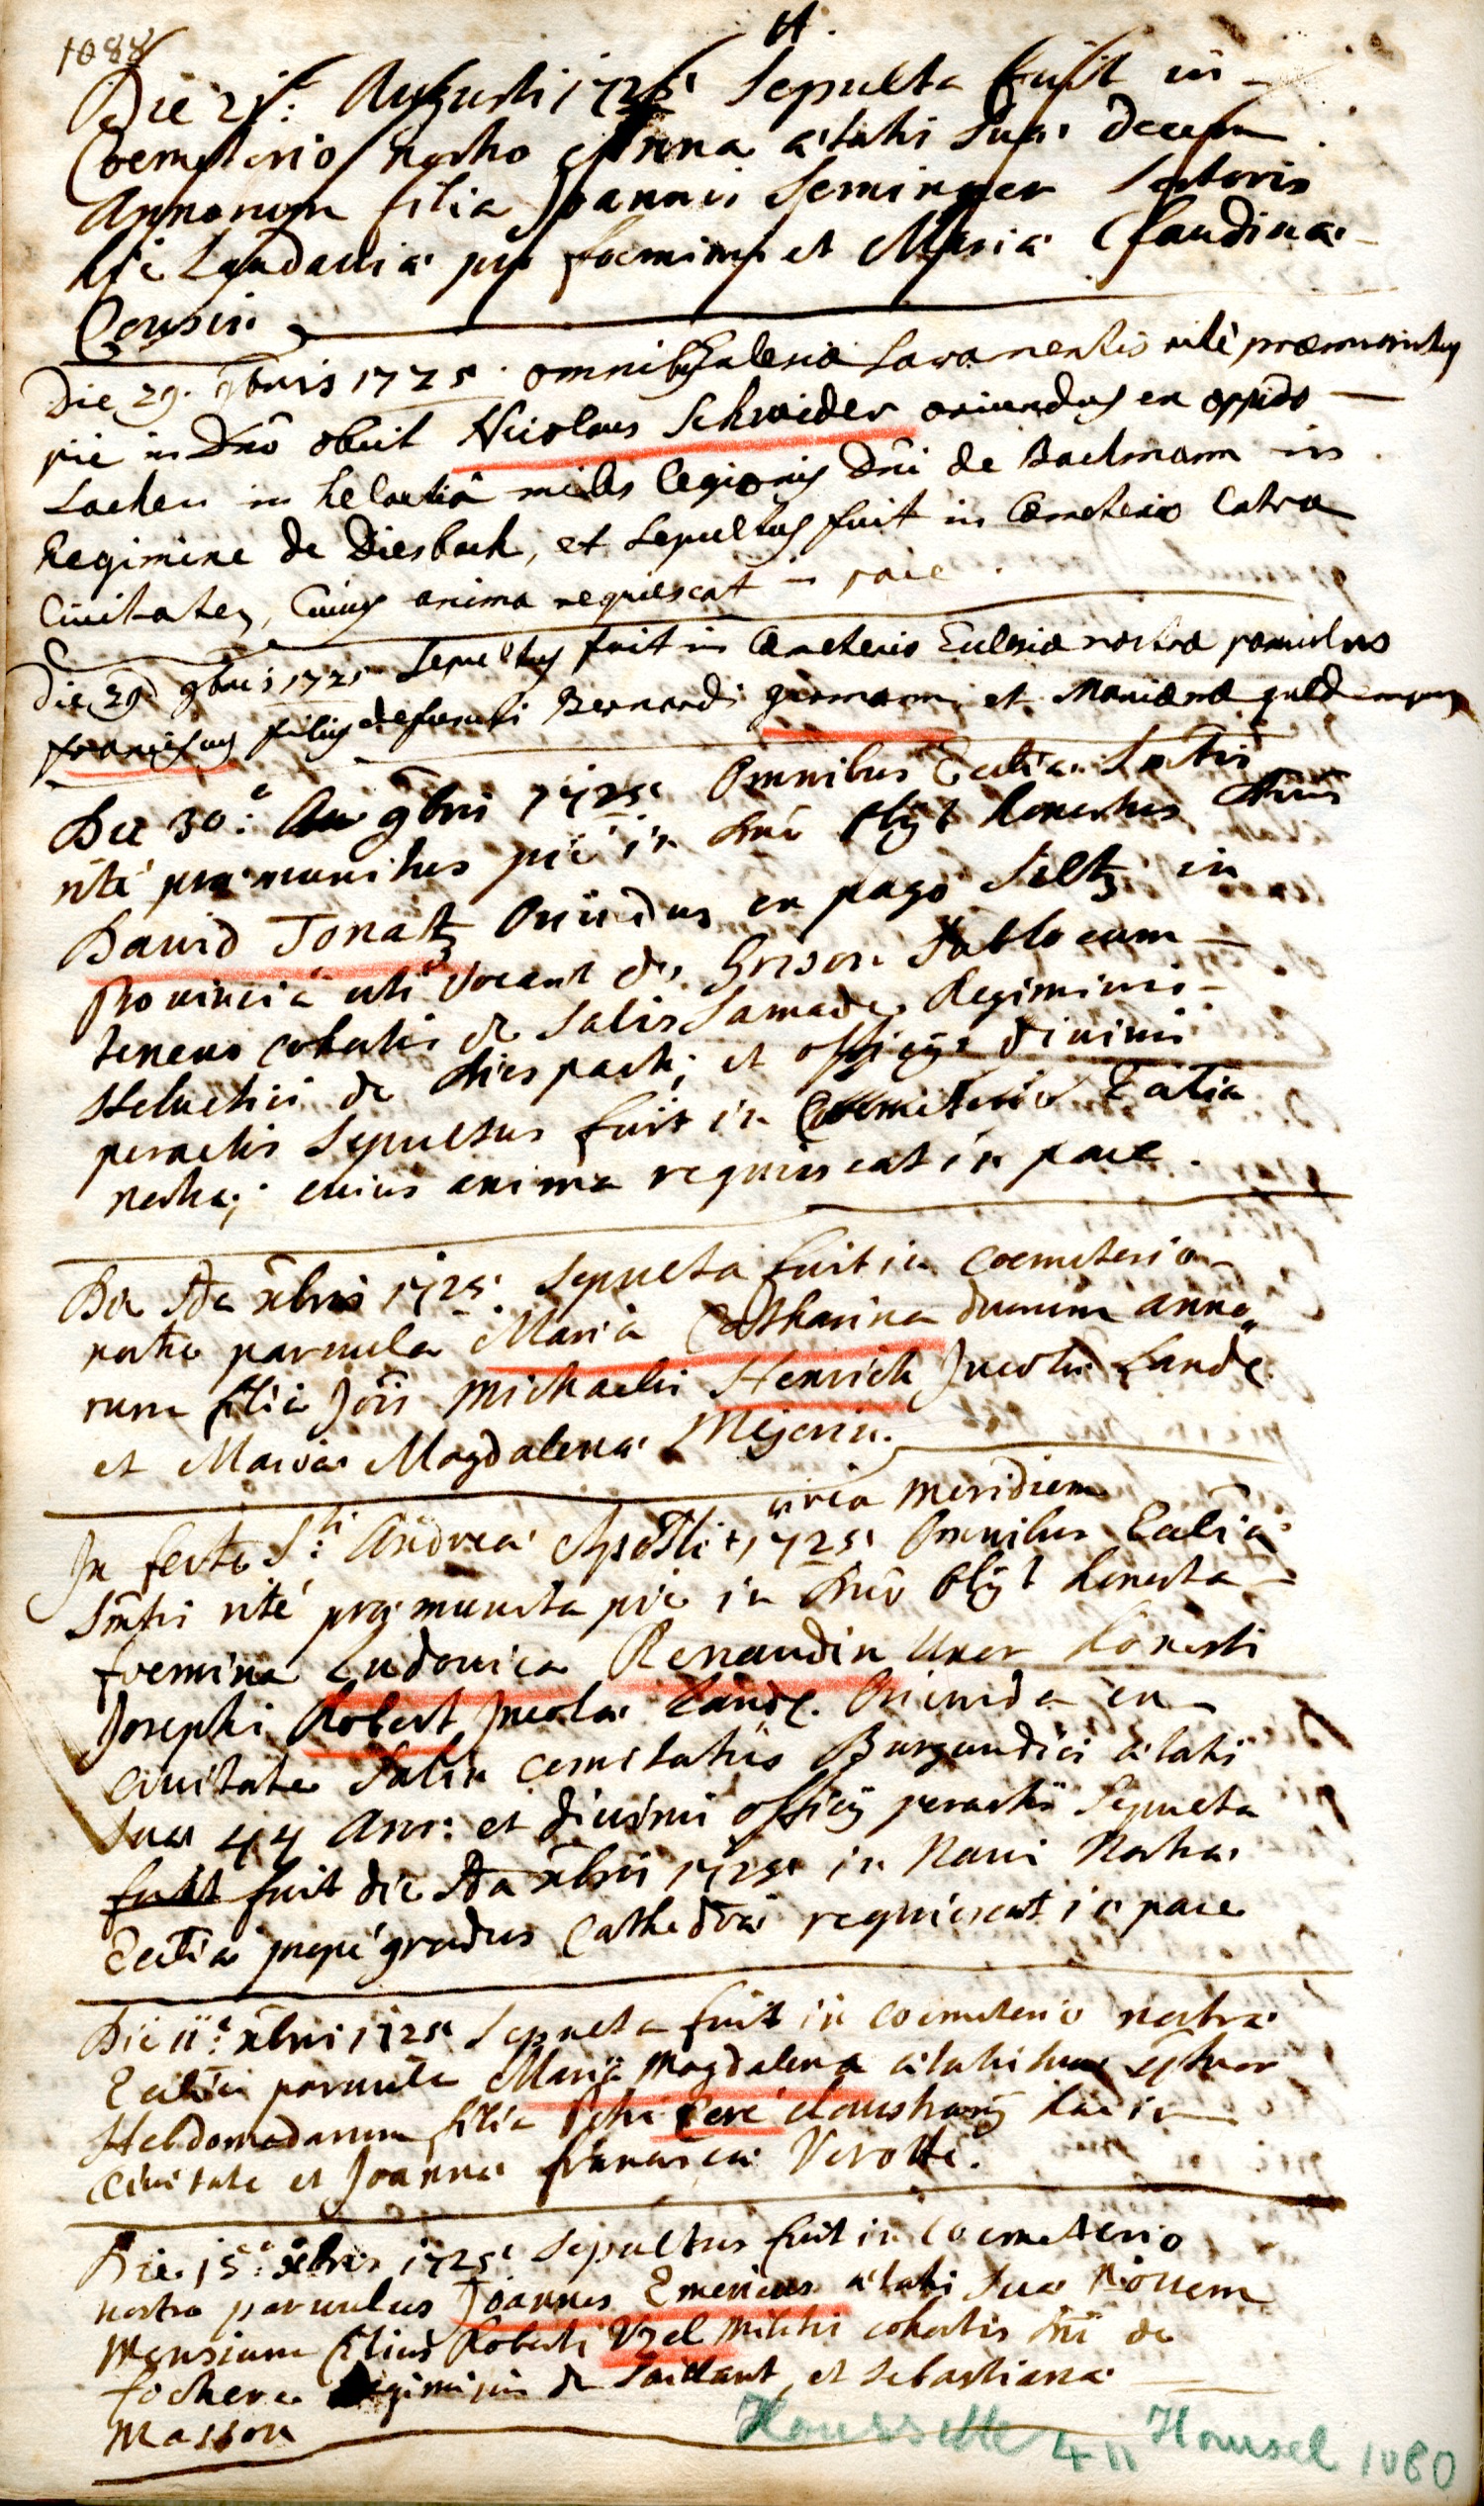 1088
H.
Die 21.ᵉ Augusti 1725 Sepulta fuit in
Coemeterio nostro Anna ætatis suæ decem
Annorum filia Joannis Seminger Sartoris
hic Landaviæ pro foeminis et Mariæ Claudinæ
Cousin
Die 29. 9bris 1725. omnibus Ecclesiæ Sacramentis ritè præmunitus
pie in Dño obiit Nicolaus Schneider oriundus ex oppido
Lachen in helvetiâ miles legionis Dñi de Bachmann in
Regimine de Diesbach, et Sepultus fuit in Cœmeterio extra
Civitatem, Cuius anima requiescat in pace.
Die 29 9bris 1725 Sepultus fuit in Cœmeterio Ecclesiæ nostræ parvulus
franciscus filius defuncti Bernardi germann et Mariæ
Die 30.ᵉ 9bris 1725 Omnibus Ecclîæ Smtis
rité præmunitus pié in Dño obijt honestus
David Jonatz Oriundus ex pago Seltz in
Provinciâ uti vocant des Grison
tenens cohortis de Salis Samade Regiminis
Helvetici de Diespach; et officijs divinis
peractis Sepultus fuit in Coemeterio Ecclîæ
nostræ; cuius anima requiescat in pace.
Die Xbris 1725 Sepulta fuit in Coemeterio
nostro parvula Maria Catharina duorum anno„
rum filia Jôis Michaelis Henrich Jncolæ Landæ
et Mariæ Magdalenæ Mejerin.
circa Meridiem
Jn festo S:ᵗⁱ Andreæ Apostli 1725 Omnibus Ecclîæ
Smtis rité præmunita pié in Dño obijt honesta
foemina Ludovica Renaudin Uxor honesti
Josephi Robert Jncolæ Landæ. Oriunda ex
Civitate Salin Comitatûs Burgundici ætatis
suæ 44 Ann: et divinis officijs peractis Sepulta
fuit fuit die Xbris 1725 in Navi Nostræ
Ecclîæ propè gradus Cathedræ requiescat in pace
Die 11.ᵉ Xbris 1725 Sepulta fuit in Coemeterio nostræ
Ecclîæ parvula Maria Magdalena ætatis suæ
Hebdomadarum filia Petri Ceré hac in
Civitate et Joannæ franciscæ Verotte.
Die 15.ᵉ Xbris 1725 Sepultus fuit in Coemeterio
nostro parvulus Joannes Emericus ætatis suæ Novem
Mensium filius Roberti Uzel Militis cohortis Dñi de
fochere Regiminis de Saillant, et Sebastianæ
Masson
Houssette 411 Housel 1080